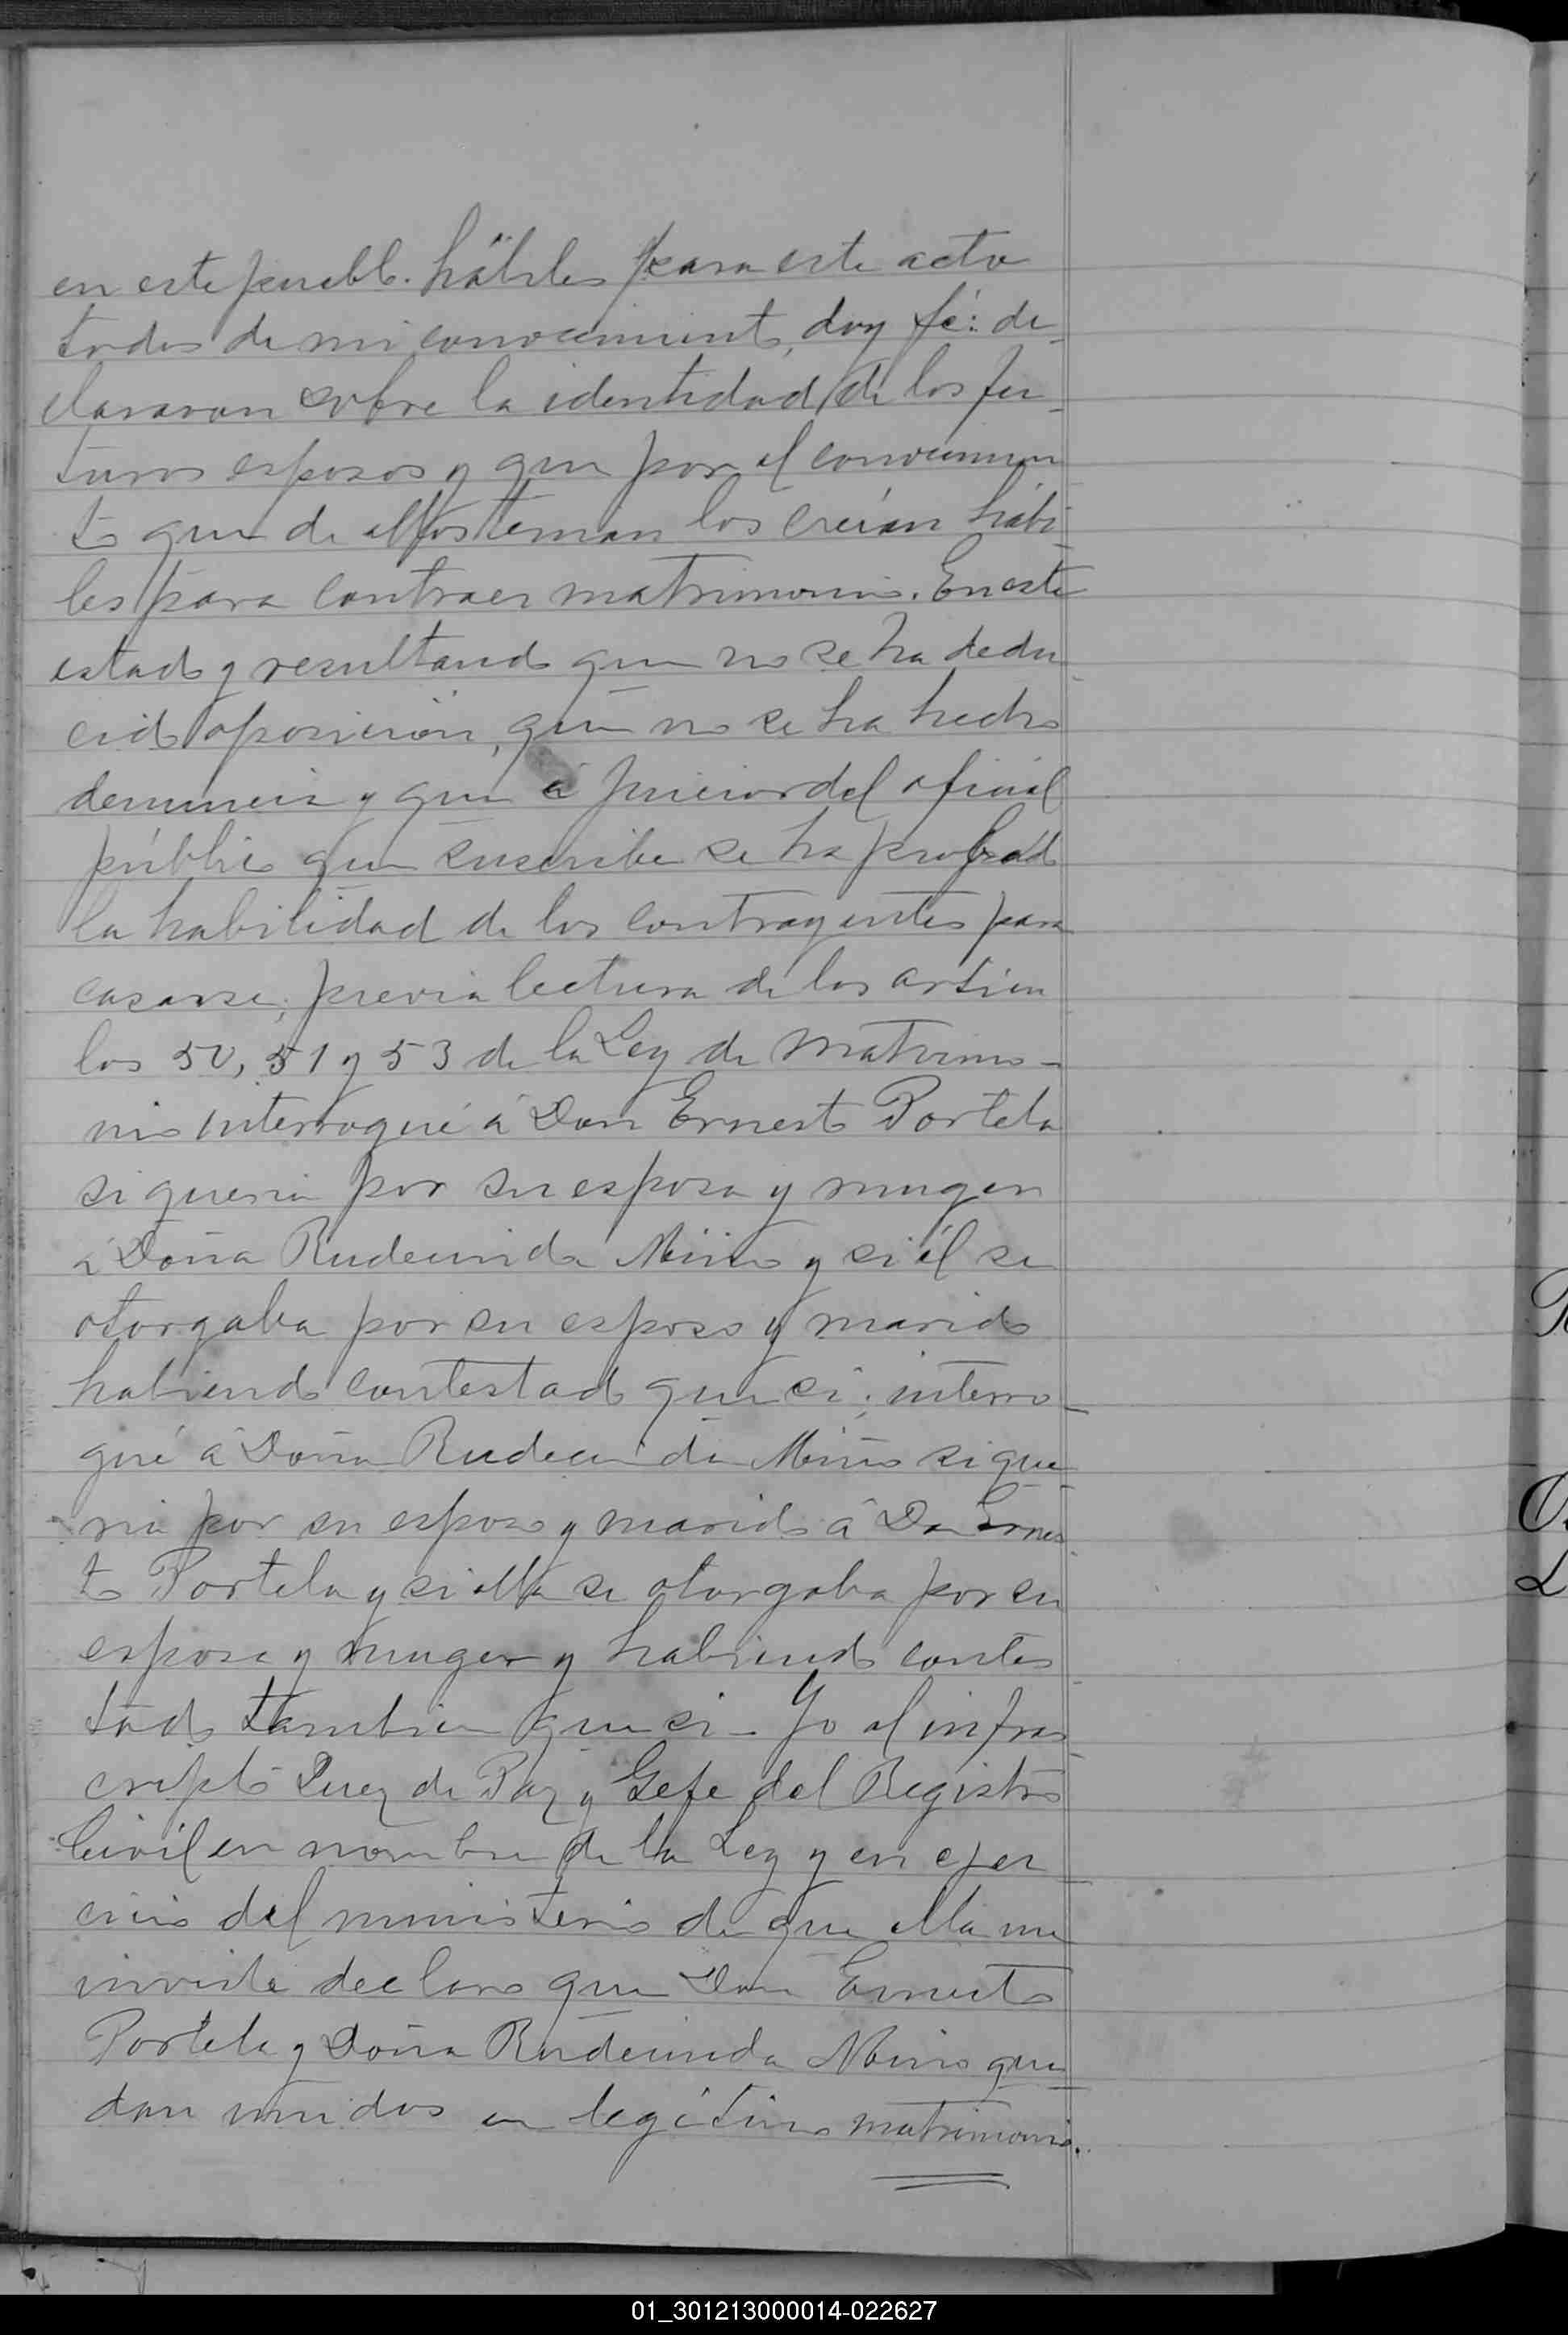 en este pueblo. hábiles para este acto
todos de mi conocimiento, doy fé: de-
claravan sobre la identidad de los fu-
turos esposos y que por el conocimien
to que de ellos tenian los creían hábi
les para contraer matrimonio. En este
estado y resultando que no se ha dedu
cido oposición, que no se ha hecho
denuncia y que á juicio del oficial
público que suscribe se ha probado
la habilidad de los contrayentes para
casarse; previa lectura de los artícu
los 50, 51 y 53 de la Ley de Matrimo-
nio interrogué á Don Ernesto Portela
si queria por su esposa y muger
á Doña Rudecinda Miño y si él se
otorgaba por su esposo y marido
habiendo contestado que si; interro-
gué á Doña Rudecinda Miño si que
ria por su esposo y marido á Don Ernes
to Portela y si ella se otorgaba por su
esposa y muger y habiendo contes
tado tambien que si- Yo el infras
cripto Juez de Paz y Gefe del Registro
Civil en nombre de la Ley y en ejer
cicio del ministerio de que ella me
inviste declaro que Don Ernesto
Portela y Doña Rudecinda Miño que
dan unidos en legítimo matrimonio.
01_301213000014-022627